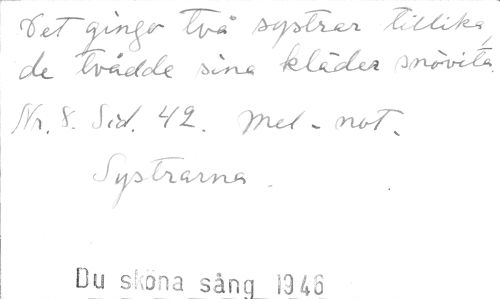 Det gingo två systrar tillika,
de tvådde sina kläder snövita.
Nr. 8. Sid. 42. Mel-not.
Systrarna.
Du sköna sång 1946